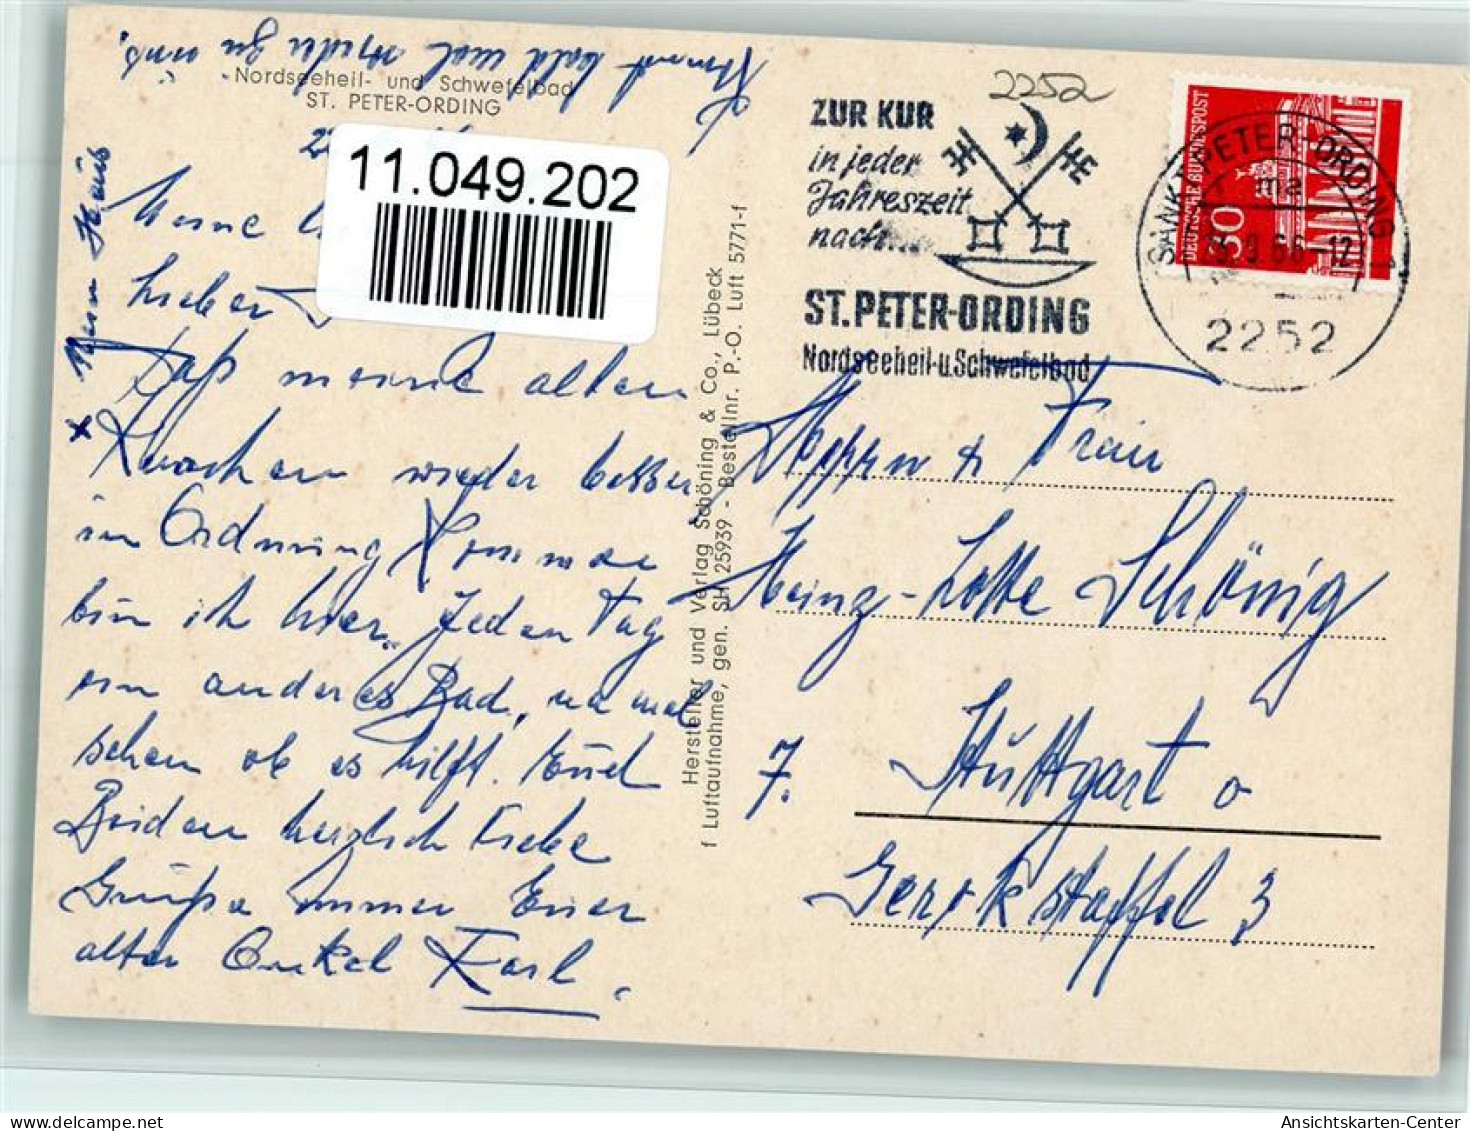 Kommt bald mal wieder zu uns.
Nordseeheil- und Schwefelbad
ST. PETER-ORDING
11.049.202
Meine
lieber
Daß meine alten
Knochen wieder besser
in Ordnung kommen
bin ich hier. Jeden Tag
ein anderes Bad, na mal
sehen ob es hilft. Euch
Beiden herzlich liebe
Grüße immer Euer
alter Onkel Karl.
x Mein Haus
Hersteller und Verlag Schöning & Co., Lübeck
f Luftaufnahme, gen. SH 25939 - Bestellnr. P.-O. Luft 5771-f
2252
ZUR KUR
in jeder
Jahreszeit
nach...
ST. PETER-ORDING
Nordseeheil-u.Schwefelbad
DEUTSCHE BUNDESPOST
30
SANKT PETER-ORDING 1
ma
9.66-12
2252
Frau
Heinz-Lotte Schönig
7. Stuttgart o
Gerokstaffel 3
Ansichtskarten-Center